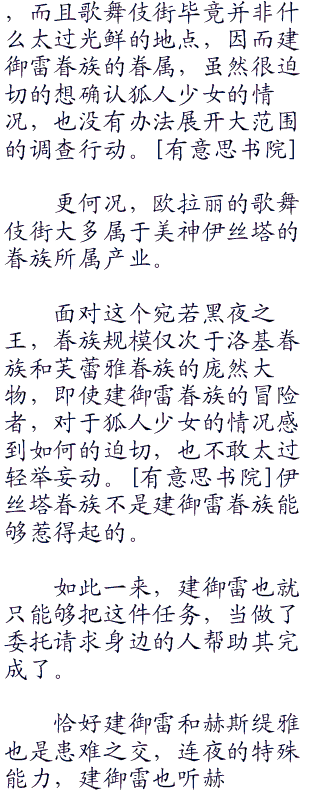 ，而且歌舞伎街毕竟并非什
么太过光鲜的地点，因而建
御雷眷族的眷属，虽然很迫
切的想确认狐人少女的情
况，也没有办法展开大范围
的调查行动。[有意思书院]
更何况，欧拉丽的歌舞
伎街大多属于美神伊丝塔的
眷族所属产业。
面对这个宛若黑夜之
王，眷族规模仅次于洛基眷
族和芙蕾雅眷族的庞然大
物，即使建御雷眷族的冒险
者，对于狐人少女的情况感
到如何的迫切，也不敢太过
轻举妄动。[有意思书院]伊
丝塔眷族不是建御雷眷族能
够惹得起的。
如此一来，建御雷也就
只能够把这件任务，当做了
委托请求身边的人帮助其完
成了。
恰好建御雷和赫斯缇雅
也是患难之交，连夜的特殊
能力，建御雷也听赫